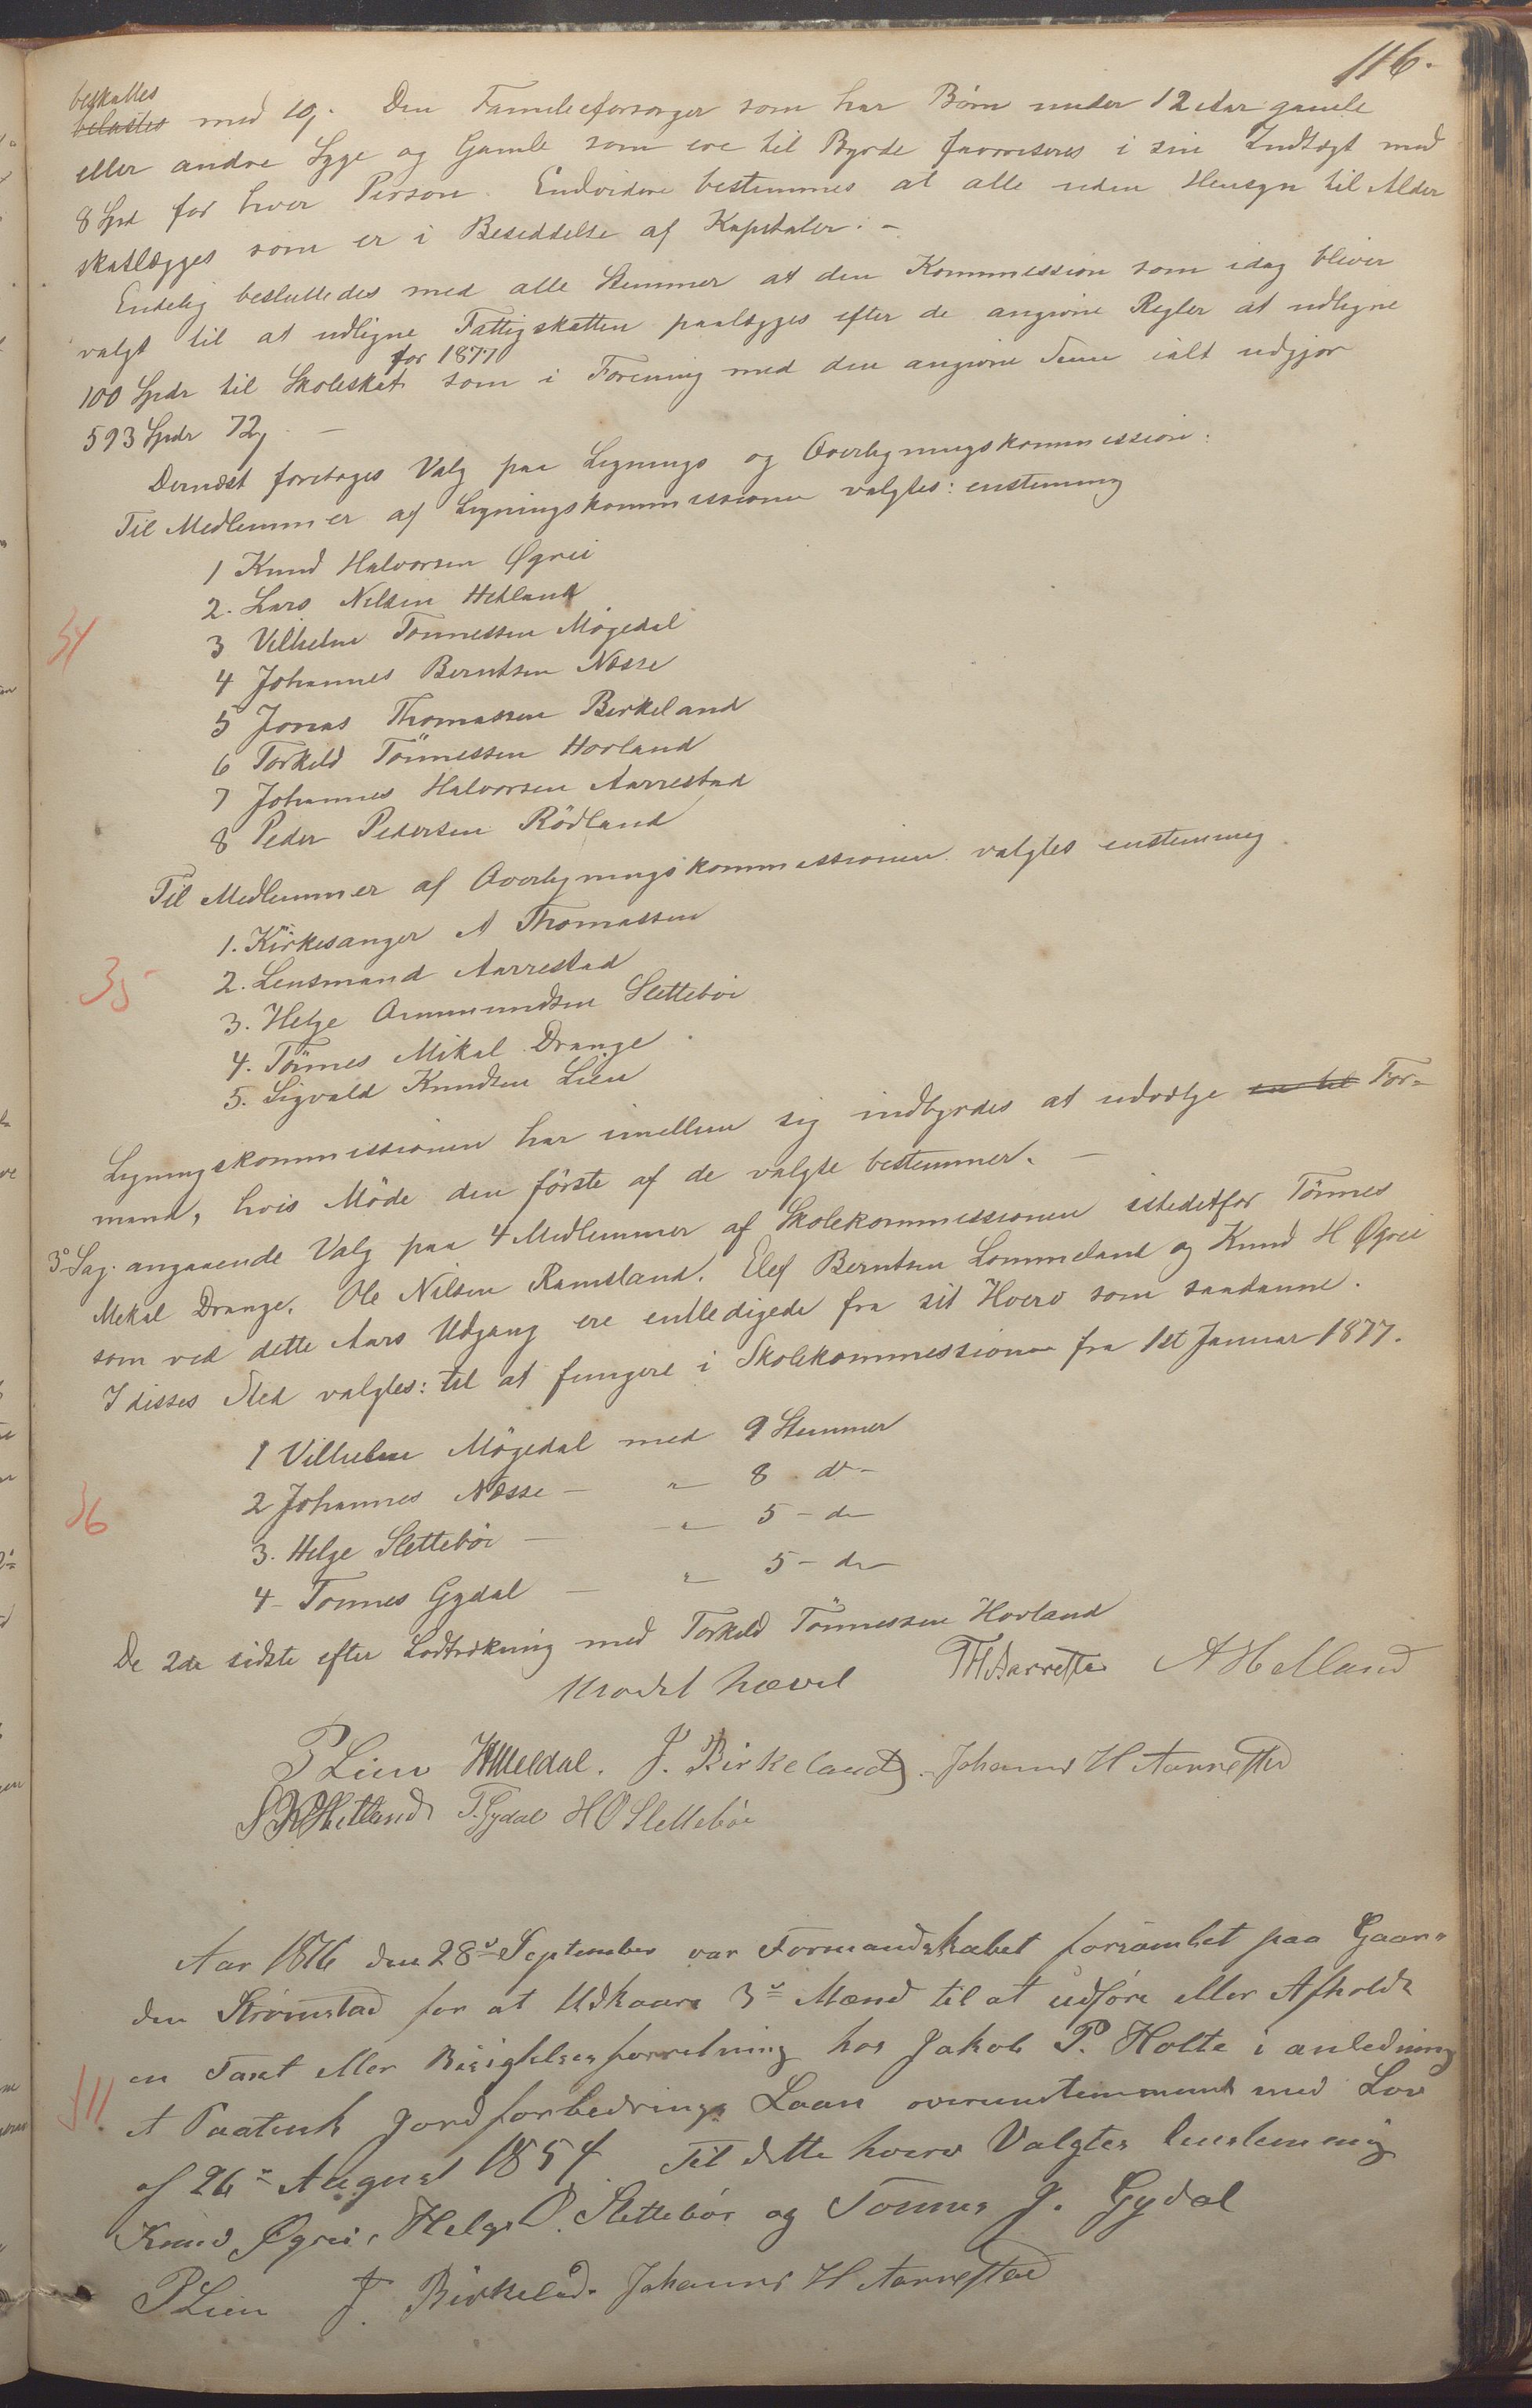 116.
beskattes
belastes med 10ß. Den Familieforsørger som har Börn under 12 Aar gamle
eller andre Syge og Gamle som ere til Byrde favoriseres i sin Indtægt med
8 Spd for hver Person. Endvidere bestemmes at alle uden Hensyn til Alder
skatlægges som er i Besiddelse af Kapitaler. -
Endelig besluttedes med alle Stemmer at den Kommission som idag bliver
valgt til at udligne Fattigskatten paalægges efter de angivne Regler at udligne
for 1877
100 Spdr til Skoleskat som i Forening med den angivne Sum ialt udgjør
593 Spdr 72ß. -
Dernæst foretoges Valg paa Lignings og Overligningskommission:
Til Medlemmer af Ligningskommissionen valgtes: enstemmig
1 Knud Halvorsen Øgrei
2. Lars Nilsen Hetland
34
3 Vilhelm Tönnessen Mögedal
4 Johannes Berntsen Næsse
5 Jonas Thomassen Birkeland
6 Torkild Tönnessen Hovland
7 Johannes Halvorsen Aarrestad
8 Peder Pedersen Rödland
Til Medlemmer af Overligningskommissionen valgtes enstemmig.
1. Kirkesanger A Thomassen
35
2. Lensmand Aarrestad
3. Helge Ommundsen Sletteböe
4. Tönnes Mikal Drange.
5. Sigvald Knudsen Lien
Ligningskommissionen har imellem sig indbyrdes at udvælge en til For-
mand, hvis Möde den förste af de valgte bestemmer. -
3o Sag. angaaende Valg paa 4 Medlemmer af Skolekommissionen istedetfor Tönnes
Mekal Drange, Ole Nilsen Ramsland, Elef Berntsen Lommeland og Knud H Øgrei
som ved dette Aars Udgang ere entledigede fra sit Hverv som saadanne.
I disses Sted valgtes: til at fungere i Skolekommissionen fra 1st Januar 1877.
1 Vilhelm Mögedal med 9 Stemmer
2 Johannes Næsse - " 8 do -
36
3. Helge Slettebö - " 5 - do
4 - Tonnes Gydal - " 5 - do
De 2de sidste efter Lodtrækning med Torkild Tönnessen Hovland
Mödet hævet
TH Aarrestad A Hetland
P Lien J. Birkeland. Johannes H Aarrestad
Hetland T. Gydal H O Slettebøe
Aar 1876 den 28de September var Formandskabet forsamlet paa Gaar-
den Strömstad for at Udkaare 3de Mænd til at udføre eller Afholde
en Taxt eller Besigtelsesforretning hos Jakob P. Holte i anledning
S 11.
et Paatenk Jordforbedrings Laan overenstemmende med Lov
af 26de August 1854. Til dette hverv Valgtes Eenstemmig
Knud Øgrei, Helge O. Slettebø og Tonnes J. Gydal
P Lien J. Birkeland. Johannes H Aarrestad